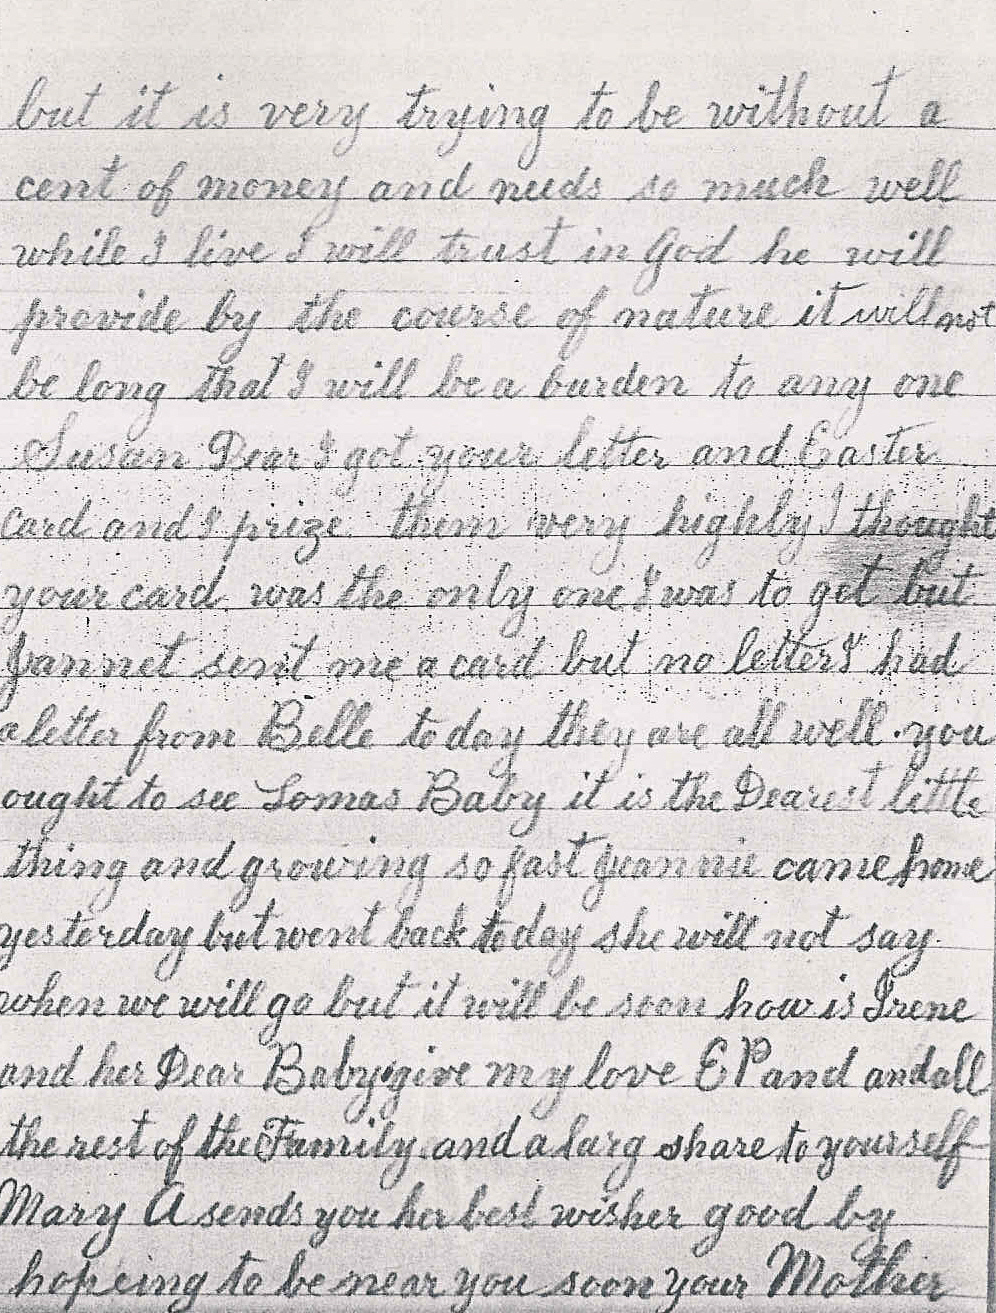 but it is very trying to be without a
cent of money and needs so much well
while I live I will trust in God he will
provide by the course of nature it will not
be long that I will be a burden to any one
Susan Dear I got your letter and Easter
card and I prize them very highly I thought
your card was the only one I was to get but
Jannet sent me a card but no letter I had
a letter from Belle to day they are all well you
ought to see Lomas Baby it is the Dearest little
thing and growing so fast Jeannie came home
yesterday but went back to day she will not say
when we will go but it will be soon how is Irene
and her Dear Baby give my love E P and and all
the rest of the Family and a larg share to yourself
Mary A sends you her best wisher good by
hopeing to be near you soon your Mother